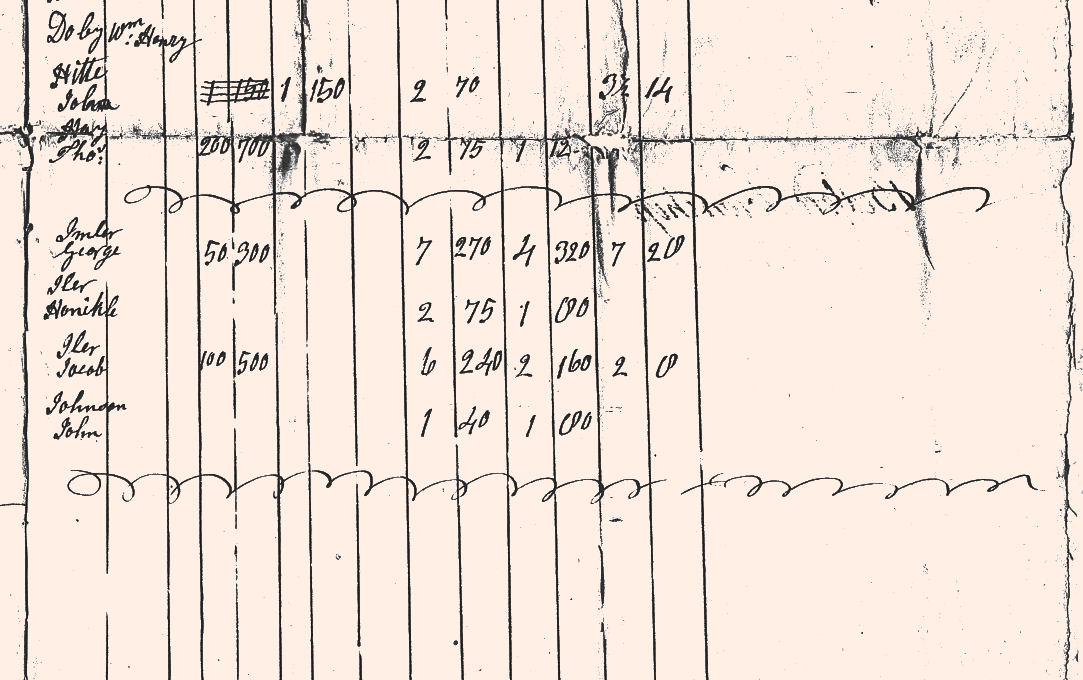 Doby Wm: Henry
Hitte
John 1 150 2 70 3½ 14
Hay
Tho: 200 700 2 75 1 12
Imler
George 50 300 7 270 4 320 7 28
Iler
Honikle 2 75 1 80
Iler
Jacob 100 500 6 240 2 160 2 8
Johnson
John 1 40 1 80